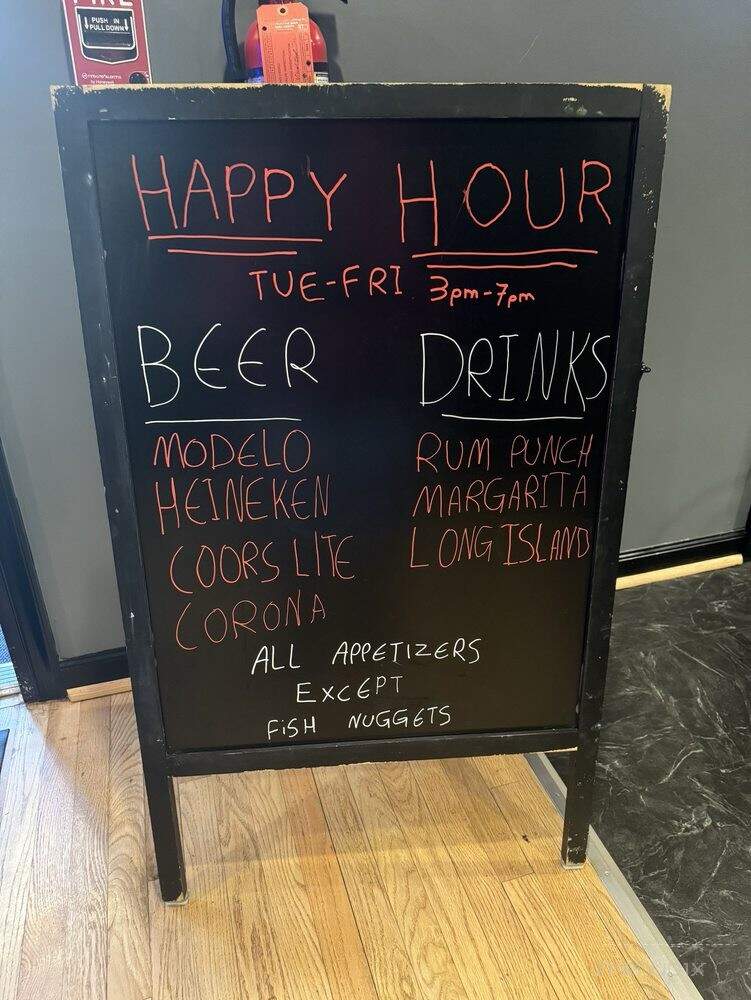 FIRE
PUSH IN
PULL DOWN
HAPPY HOUR
TUE-FRI 3pm-7pm
BEER
MODELO
HEINEKEN
COORS LITE
CORONA
DRINKS
RUM PUNCH
MARGARITA
LONG ISLAND
ALL APPETIZERS
EXCEPT
FISH NUGGETS